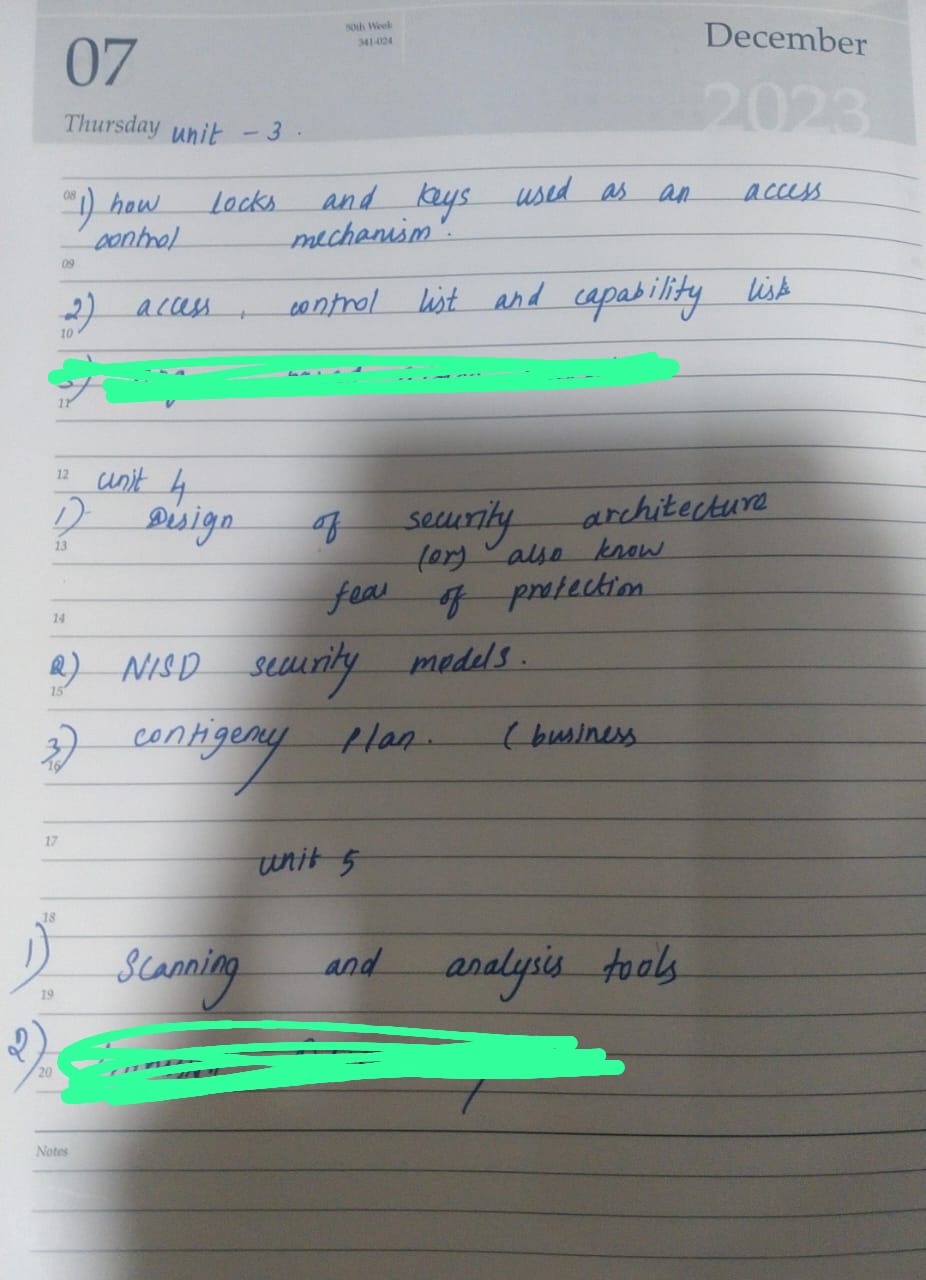 07
50th Week
341-024
December
2023
Thursday unit - 3.
08 1) how locks and keys used as an access
control mechanism.
09
2) access, control list and capability lists
10
3)
11
12 unit 4
1) Design of security architecture
13 (or) also know
fear of protection
14
2) NISD security models.
15
3) contigency plan. (business
16
17
unit 5
18
1) Scanning and analysis tools
19
2)
20
Notes